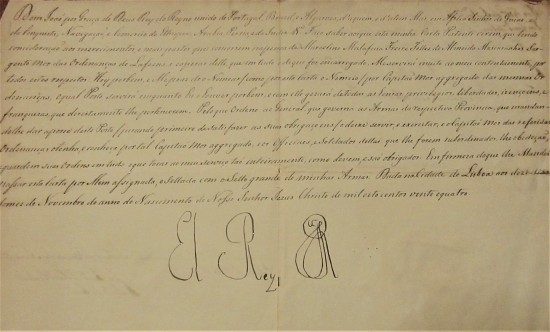 Dom João por Graça de Deos Rey do Reyno unido de Portugal Brazil, e Algarves, d'aquem, e d'alem Mar, em Africa Senhor de Guiné, e
da Conquista, Navegação, e Commercio da Ethiopia, Arabia, Persia, e da India &ª. Faço saber aos que esta minha Carta Patente virem, que tendo
consideração ao merecimento, e mais partes que concorrem na pessoa de Marcelino Malafaia Freire Telles de Almeida Mascarenhas Sar-
gento Mor das Ordenanças de Lafoens, e esperar delle que em tudo o de que for encarregado,
todos estes respeitos Hey por bem, e Me praz de o Nomear como por esta Carta o Nomeio Capitão Mor aggregado das mesmas Or-
denanças, o qual Posto servirá em quanto Eu houver por bem, e com elle gozará de todas as honras, privilegios, liberdades, izenções, e
franquezas que directamente lhe pertencerem. Pelo que Ordeno ao General que governa as Armas da respectiva Provincia, que mandan-
do-lhe dar a posse deste Posto (jurando primeiro de satisfazer as suas obrigações) o deixe servir, e exercitar, e o Capitão Mor das referidas
Ordenanças o tenha, e conheça por tal Capitão Mor aggregado, e os Officiaes, e Soldados dellas que lhe forem subordinados, lhe obedeção, e
guardem suas Ordens em tudo o que tocar ao meu serviço tão inteiramente, como devem, e são obrigados. Em firmeza do que lhe Mandei
passar esta Carta por Mim assignada, e Sellada com o Sello grande de minhas Armas. Dada na Cidade de Lisboa aos
do mez de Novembro do anno do Nascimento de Nosso Senhor Jesus Christo de mil oito centos vente e quatro
El Rey